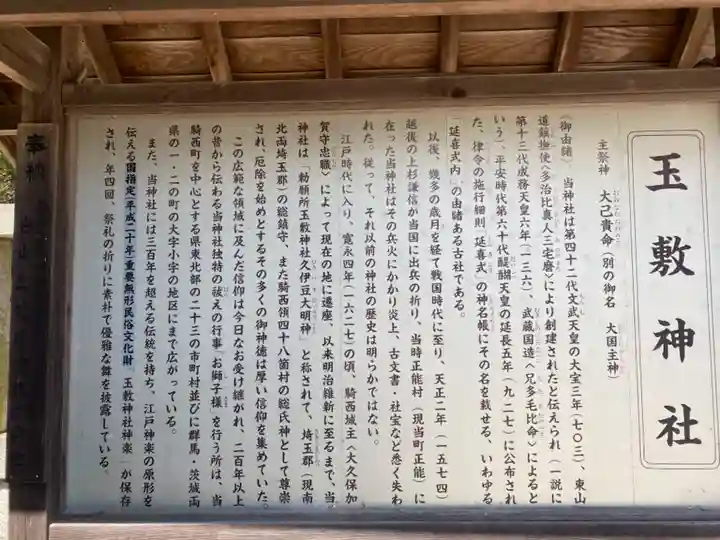 玉敷神社
主祭神　大己貴命（別の御名　大国主神）
（御由緒）　当神社は第四十二代文武天皇の大宝三年（七〇三）、東山
道鎮撫使〈多治比真人三宅麿〉により創建されたと伝えられ（一説に
第十三代成務天皇六年（一三六）、武蔵国造〈兄多毛比命〉によると
いう）、平安時代第六十代醍醐天皇の延長五年（九二七）に公布され
た、律令の施行細則『延喜式』の神名帳にその名を載せる、いわゆる
「延喜式内」の由緒ある古社である。
以後、幾多の歳月を経て戦国時代に至り、天正二年（一五七四）
越後の上杉謙信が当国に出兵の折り、当時正能村（現当町正能）に
在った当神社はその兵火にかかり炎上、古文書・社宝など悉く失わ
れた。従って、それ以前の神社の歴史は明らかではない。
江戸時代に入り、寛永四年（一六二七）の頃、騎西城主〈大久保加
賀守忠職〉によって現在の地に遷座、以来明治維新に至るまで、当
神社は「勅願所玉敷神社久伊豆大明神」と称されて、埼玉郡（現南
北両埼玉郡）の総鎮守、また騎西領四十八箇村の総氏神として尊崇
され、厄除を始めとするその多くの御神徳は厚い信仰を集めていた。
この広範な領域に及んだ信仰は今日なお受け継がれ、二百年以上
の昔から伝わる当神社独特の祓えの行事「お獅子様」を行う所は、当
騎西町を中心とする県東北部の二十三の市町村並びに群馬・茨城両
県の一・二の町の大字小字の地区にまで広がっている。
また、当神社には三百年を超える伝統を持ち、江戸神楽の原形を
伝える国指定（平成二十年）重要無形民俗文化財「玉敷神社神楽」が保存
され、年四回、祭礼の折りに素朴で優雅な舞を披露している。
奉納